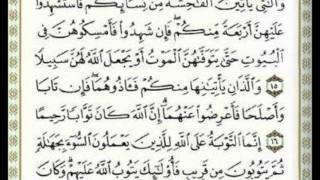 وَٱلَّٰتِى يَأْتِينَ ٱلْفَٰحِشَةَ مِن نِّسَآئِكُمْ فَٱسْتَشْهِدُوا۟
عَلَيْهِنَّ أَرْبَعَةً مِّنكُمْ ۖ فَإِن شَهِدُوا۟ فَأَمْسِكُوهُنَّ فِى
ٱلْبُيُوتِ حَتَّىٰ يَتَوَفَّىٰهُنَّ ٱلْمَوْتُ أَوْ يَجْعَلَ ٱللَّهُ لَهُنَّ سَبِيلًا
١٥ وَٱلَّذَانِ يَأْتِيَٰنِهَا مِنكُمْ فَـَٔاذُوهُمَا ۖ فَإِن تَابَا
وَأَصْلَحَا فَأَعْرِضُوا۟ عَنْهُمَآ ۗ إِنَّ ٱللَّهَ كَانَ تَوَّابًا رَّحِيمًا
١٦ إِنَّمَا ٱلتَّوْبَةُ عَلَى ٱللَّهِ لِلَّذِينَ يَعْمَلُونَ ٱلسُّوٓءَ بِجَهَٰلَةٍ
ثُمَّ يَتُوبُونَ مِن قَرِيبٍ فَأُو۟لَٰٓئِكَ يَتُوبُ ٱللَّهُ عَلَيْهِمْ ۗ وَكَانَ